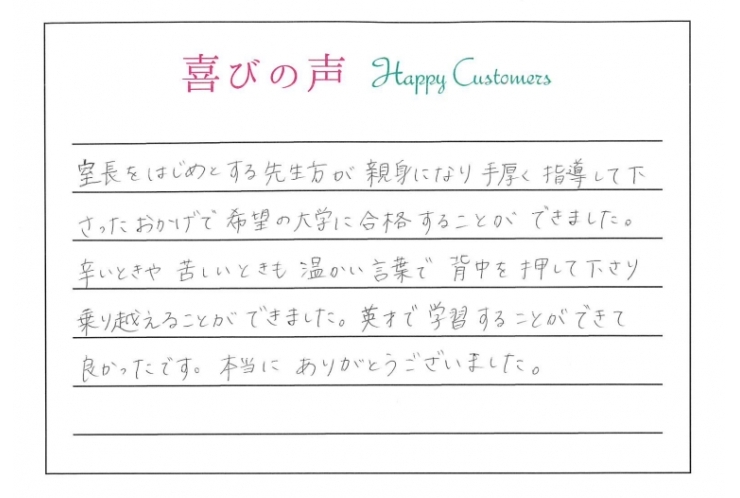 喜びの声 Happy Customers
室長をはじめとする先生方が 親身になり 手厚く 指導して下
さったおかげで 希望の大学に 合格することが できました。
辛いときや 苦しいときも 温かい言葉で 背中を押して下さり
乗り越えることができました。英才で学習することができて
良かったです。本当に ありがとうございました。